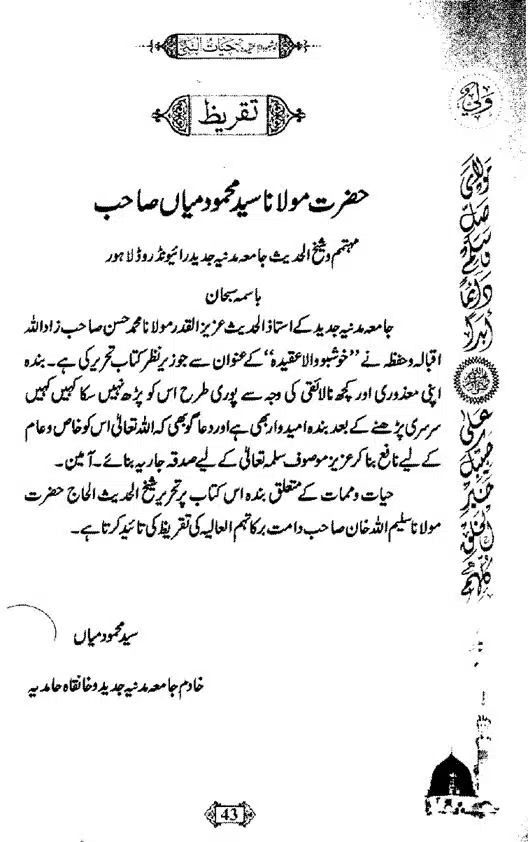 خوشبو والا عقیدہ حیات النبی
تقریظ
حضرت مولانا سید محمود میاں صاحب
مہتمم و شیخ الحدیث جامعہ مدنیہ جدید رائیونڈ روڈ لاہور
باسمہ سبحان
جامعہ مدنیہ جدید کے استاذ الحدیث عزیز القدر مولانا محمد حسن صاحب زاد اللہ
اقبالہ وحفظہ نے ”خوشبو والا عقیدہ“ کے عنوان سے جو زیر نظر کتاب تحریر کی ہے۔ بندہ
اپنی معذوری اور کچھ نالائقی کی وجہ سے پوری طرح اس کو پڑھ نہیں سکا کہیں کہیں
سرسری پڑھنے کے بعد بندہ امیدوار بھی ہے اور دعا گو بھی کہ اللہ تعالیٰ اس کو خاص و عام
کے لیے نافع بنا کر عزیز موصوف سلمہ تعالیٰ کے لیے صدقہ جاریہ بنائے۔ آمین۔
حیات و ممات کے متعلق بندہ اس کتاب پر تحریر شیخ الحدیث الحاج حضرت
مولانا سلیم اللہ خان صاحب دامت برکاتہم العالیہ کی تقریظ کی تائید کرتا ہے۔
سید محمود میاں
خادم جامعہ مدنیہ جدید و خانقاہ حامدیہ
مولای صل وسلم دائما ابدا
علی حبیبک خیر الخلق کلہم
43